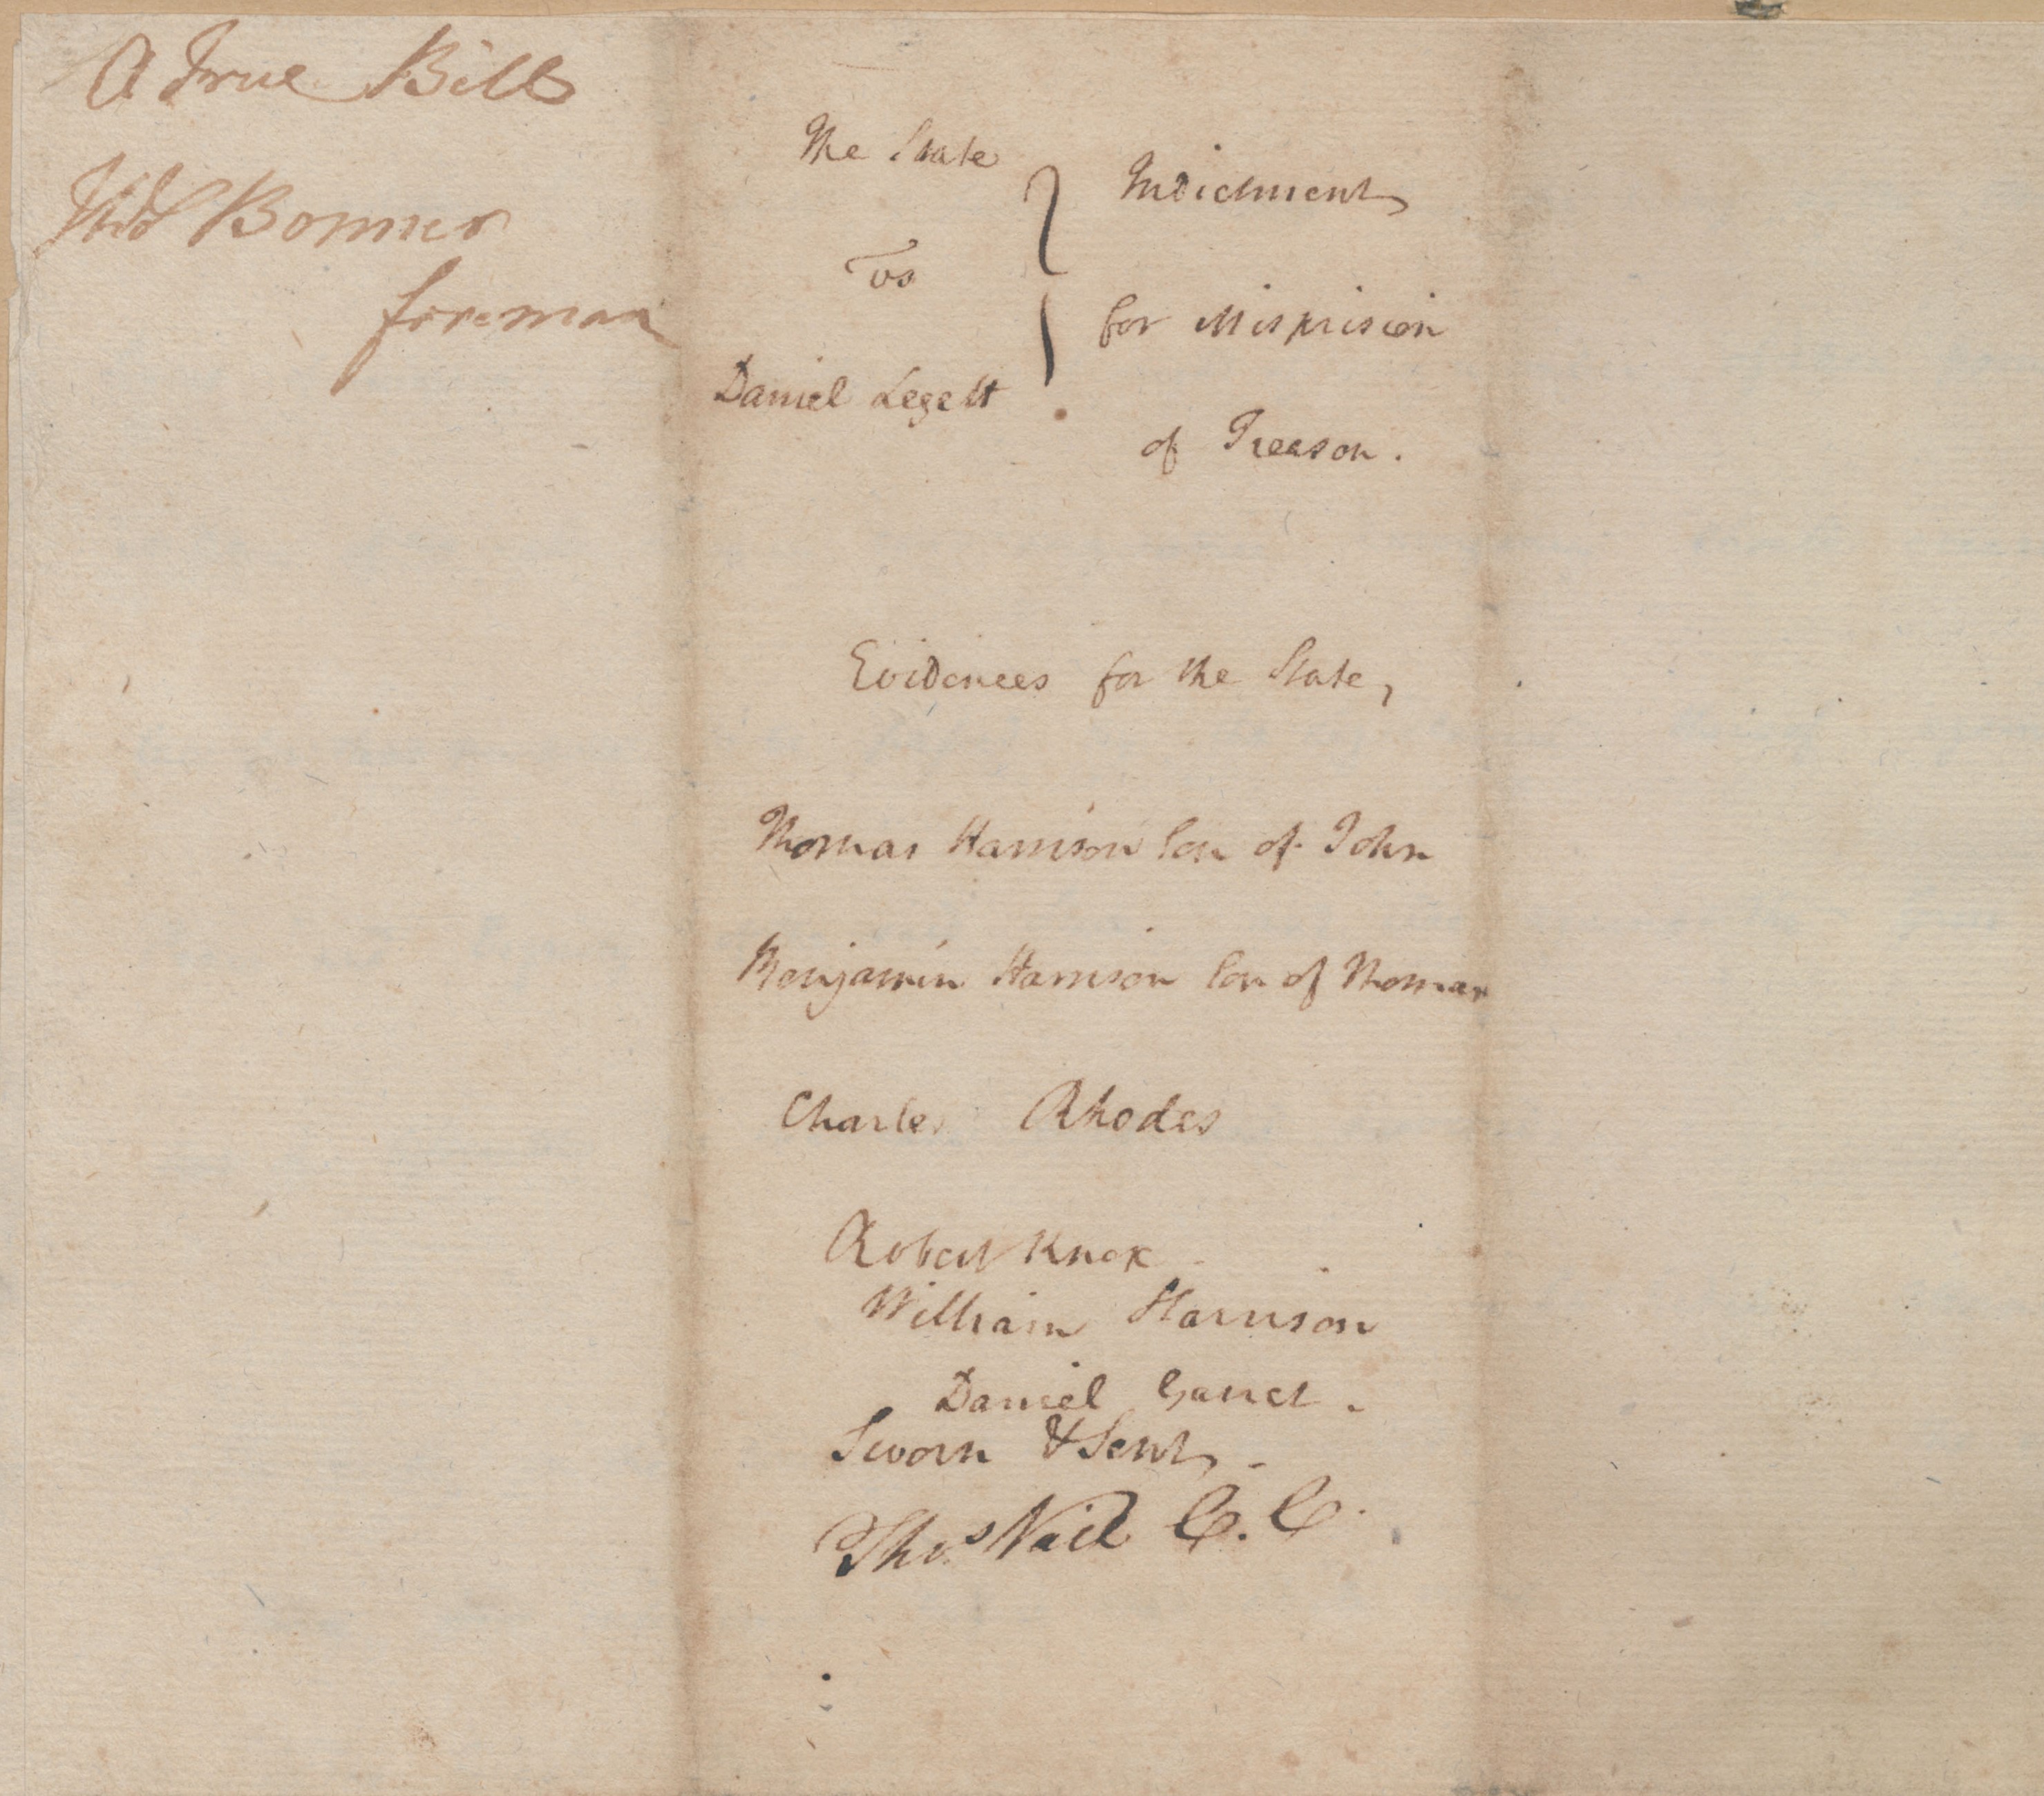 A True Bill
Thos Bonner
foreman
The State
vs
Daniel Legett
Indictment
for Misprision
of Treason.
Evidences for the State,
Thomas Harrison Son of John
Benjamin Harrison Son of Thomas
Charles Rhodes
Robert Knox
William Harrison
Daniel Garret.
Sworn & Sent.
Thos. Nail C. C.